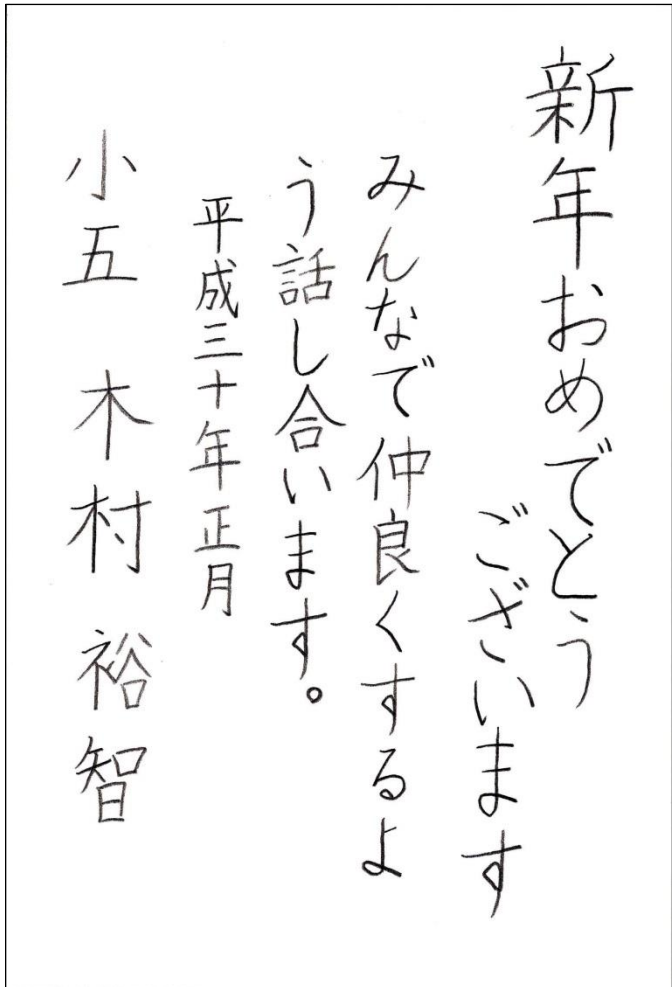 新年おめでとう
ございます
みんなで仲良くするよ
う話し合います。
平成三十年正月
小五 木村 裕智